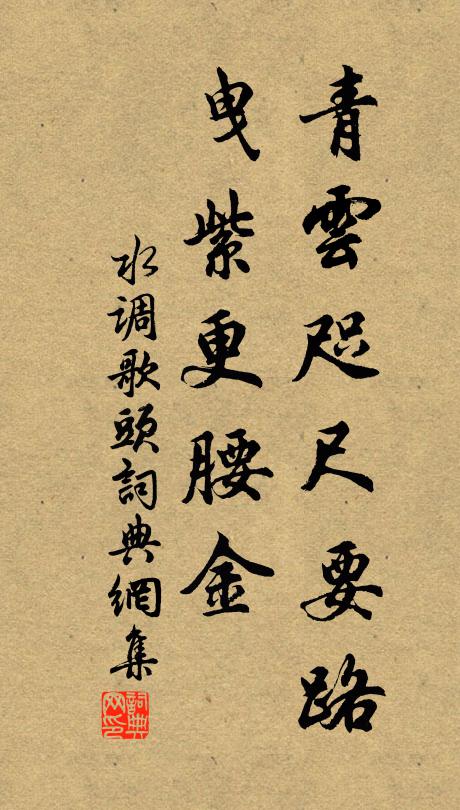 青雲咫尺要路
曳紫更腰金
水调歌頭詞典網集
詞典网印